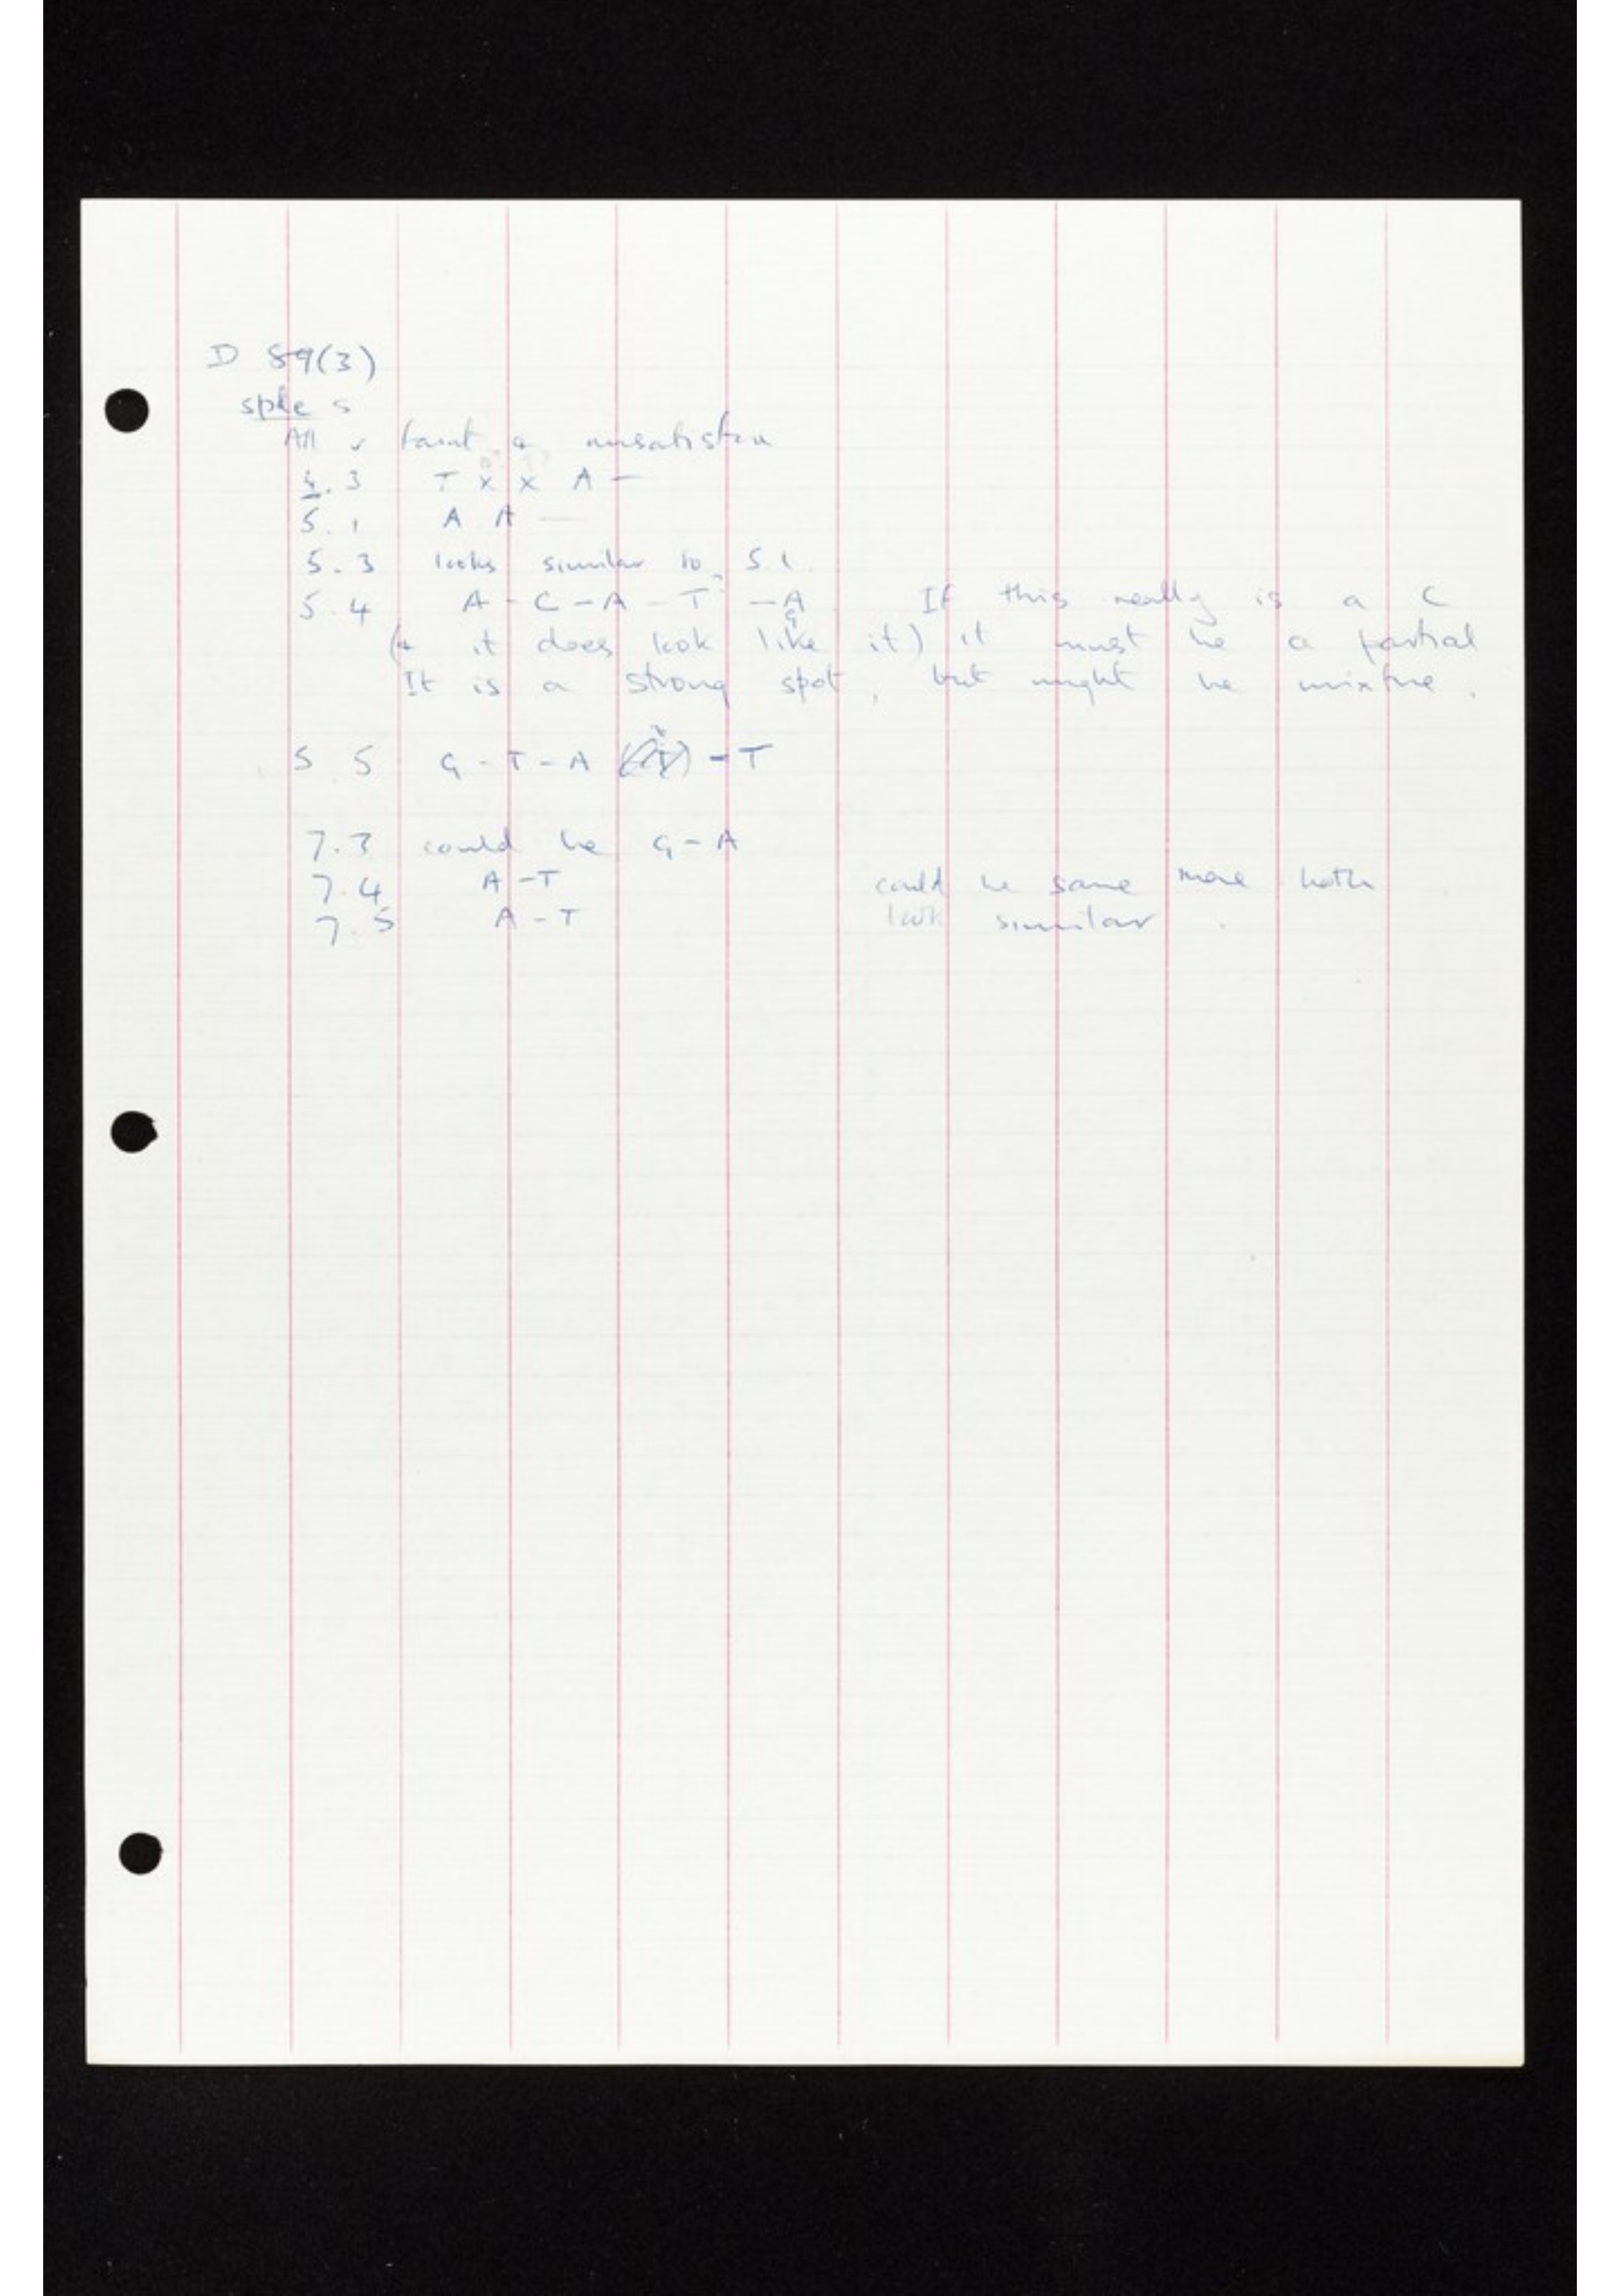 D 89(3)
sple s
All v faint &
4.3 T x x A —
5.1 A A —
5.3 looks similar to 5.1.
5.4 A - C - A - T? - A If this really is a C
G
(& it does look like it) it must be a partial
It is a strong spot, but might be mixture.
5 5 G - T - A - T
7.3 could be G - A
7.4 A - T could be same more both
7.5 A - T look similar.